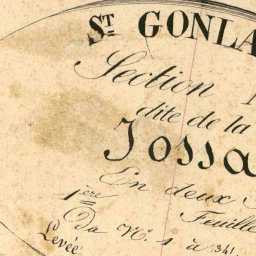 ST GONLA
Section
dite de la
Jossa
En deux
Feuille
1ère
Du N. 1 à 341
Levée